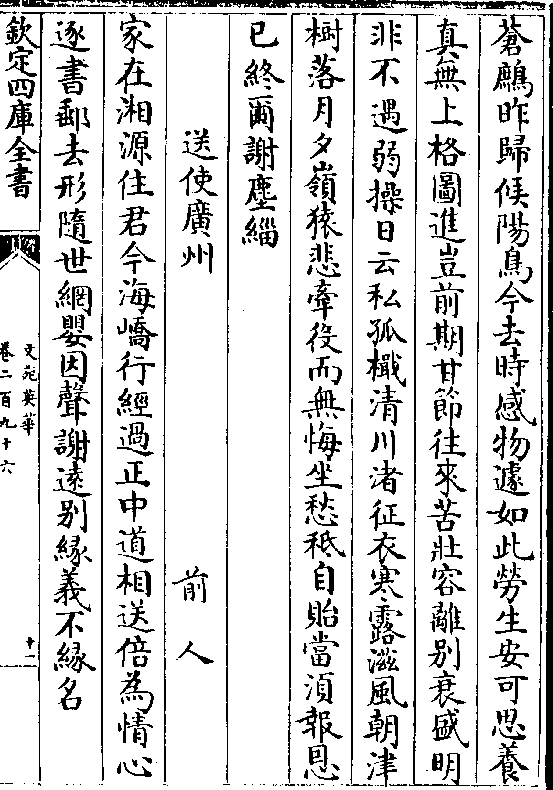 蒼鷹昨歸候陽鳥今去時感物遽如此勞生安可思養
真無上格圖進豈前期甘節徃來苦壯容離别衰盛明
非不遇弱操日云私孤檝清川渚征衣寒露滋風朝津
樹落月夕嶺猿悲牽役而無悔坐愁秪自貽當須報恩
已終爾謝塵緇
送使廣州
前人
家在湘源住君今海嶠行經過正中道相送倍為情心
逐書郵去形隨世網嬰因聲謝逺别緣義不緣名
欽定四庫全書
文苑英華
卷二百九十六
十二